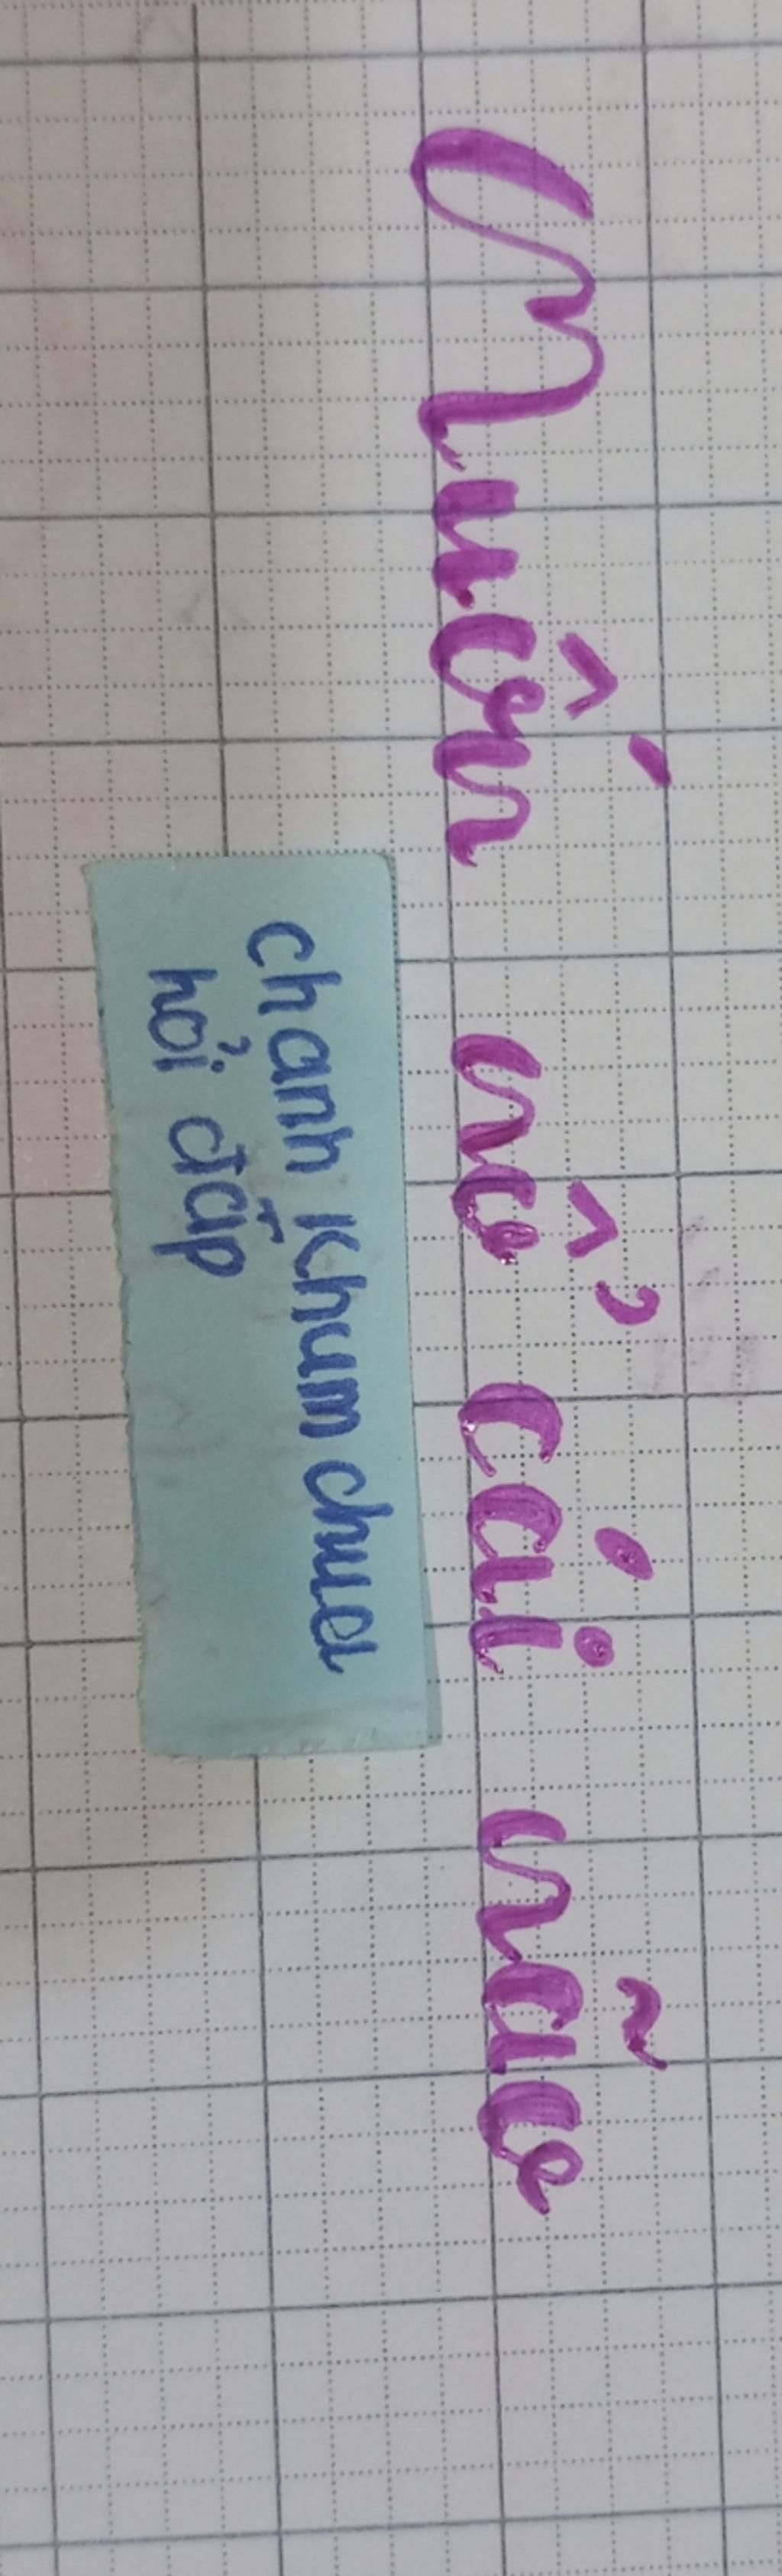 Muốn nổ cái não
chanh khum chua
hỏi đắp